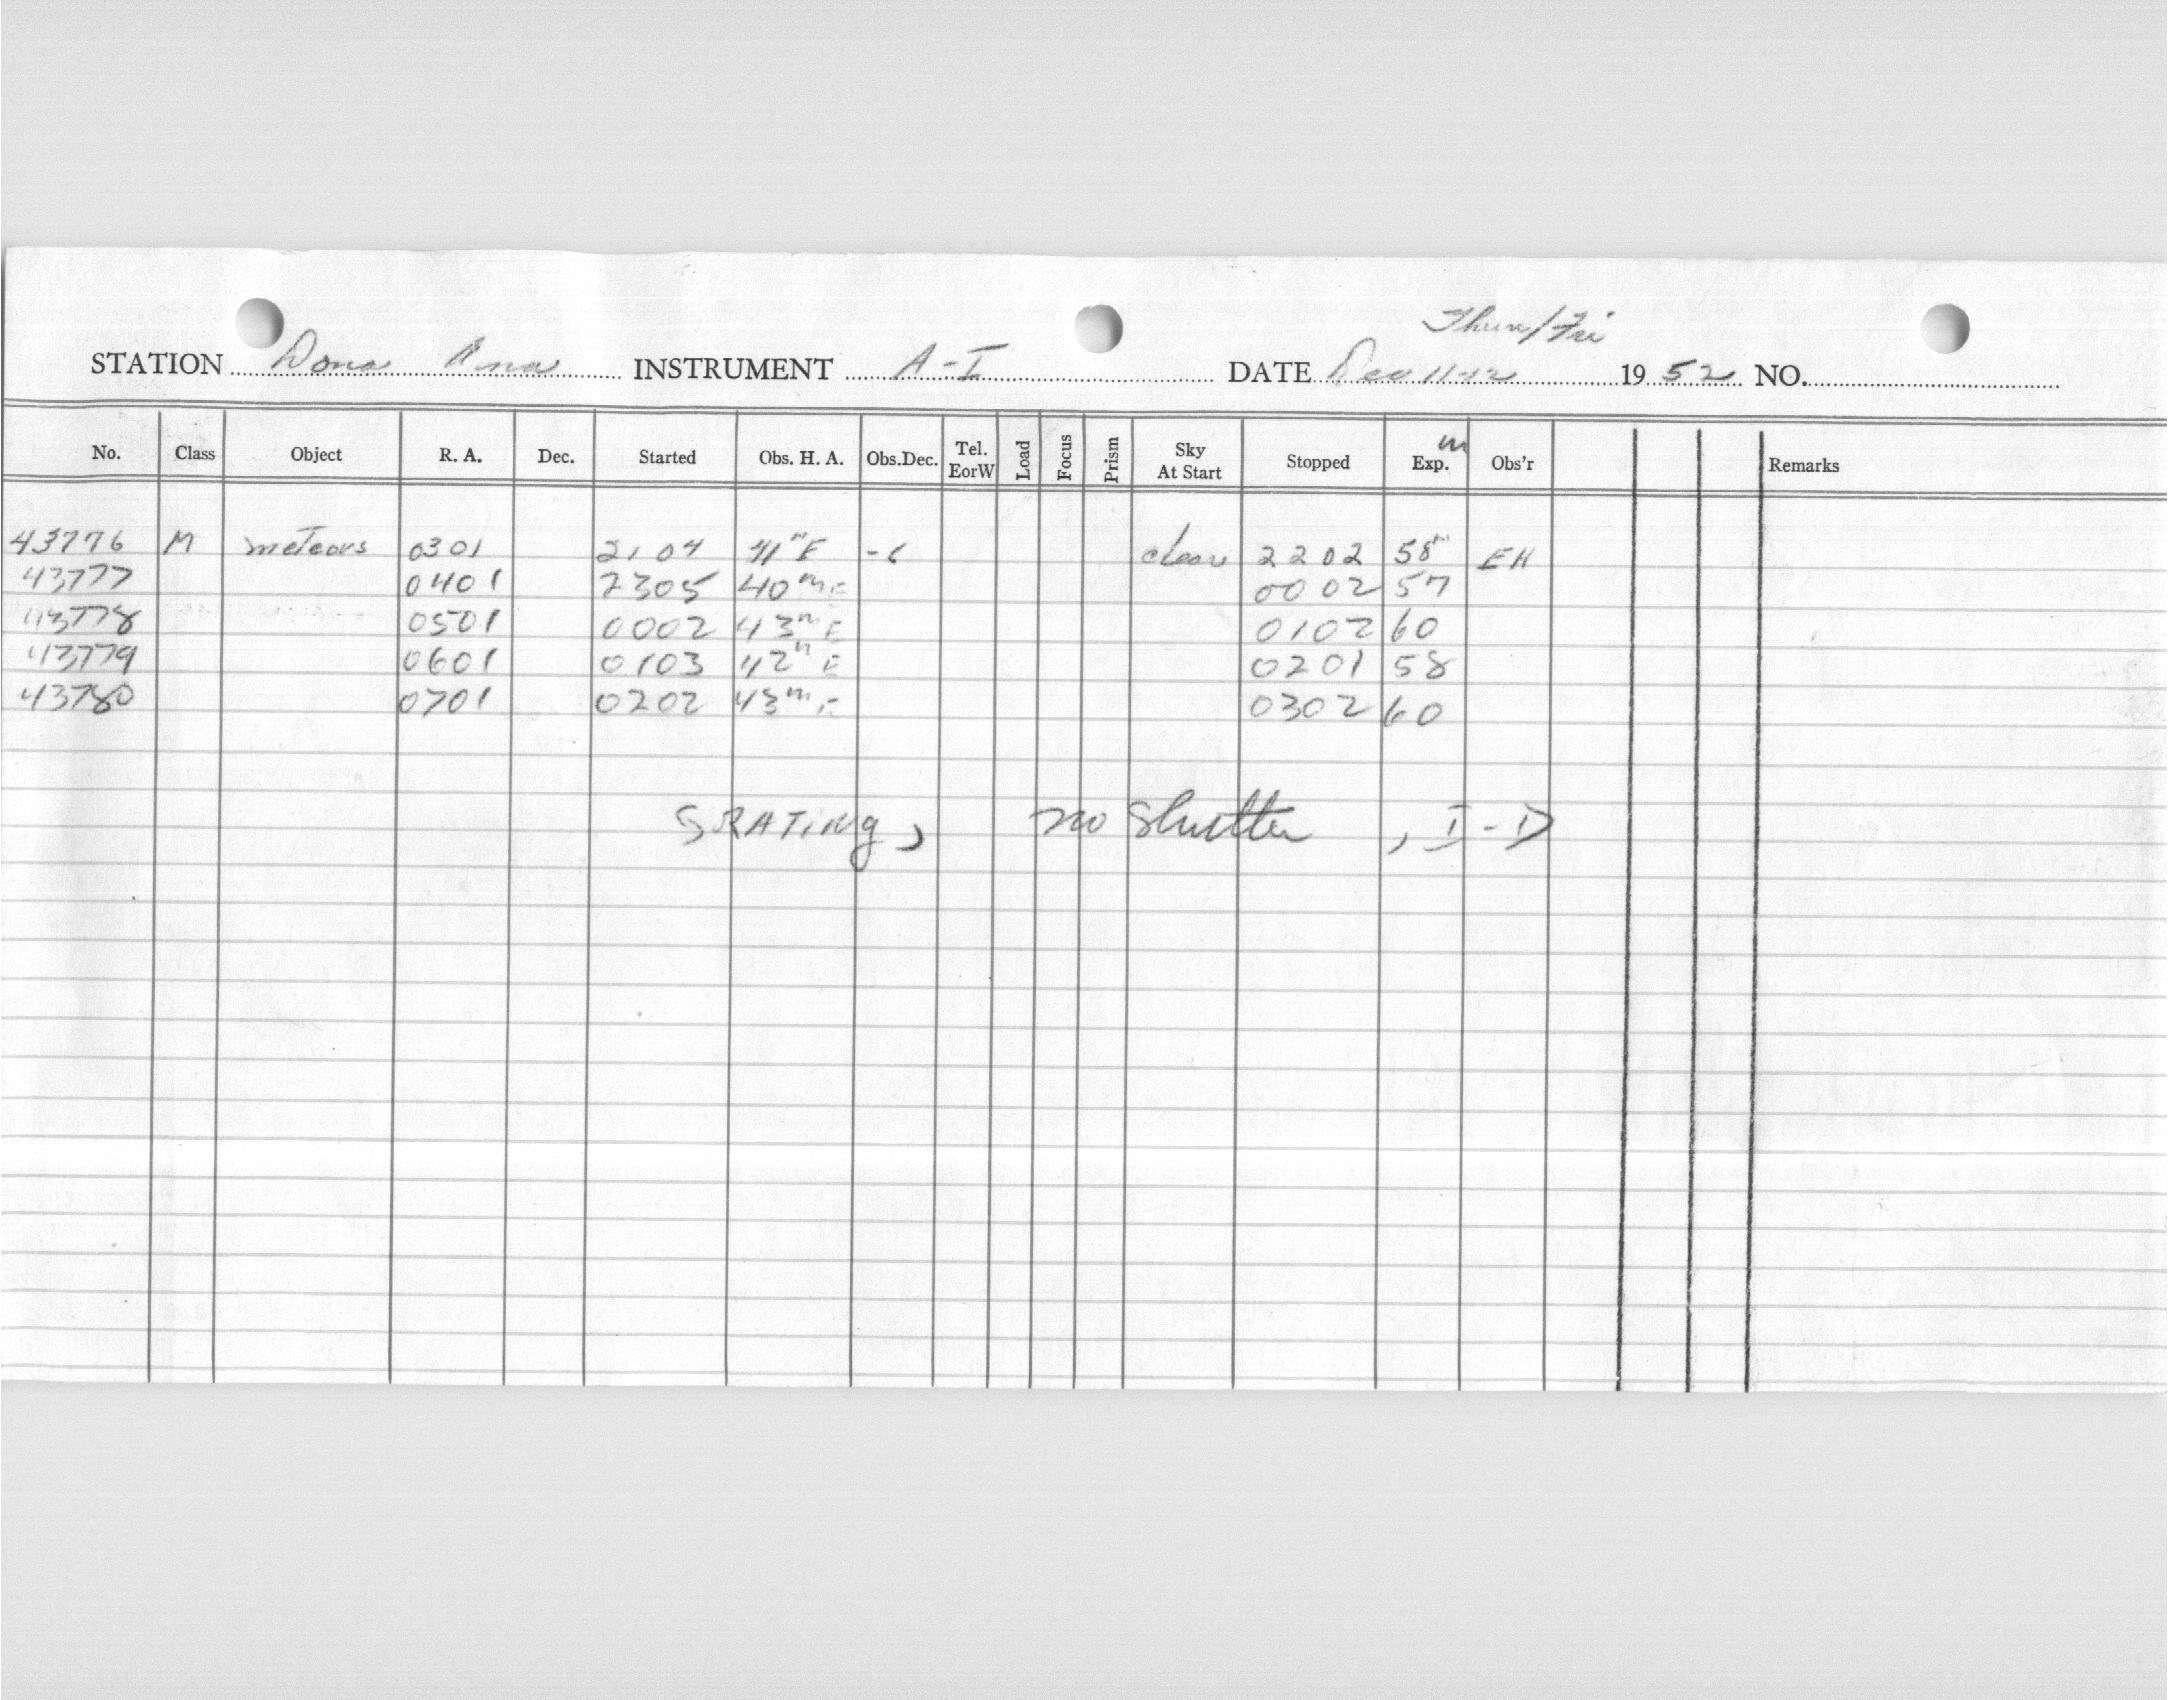 Thur/Fri
STATION Dona Ana INSTRUMENT A-I DATE Dec 11-12 1952 NO.
No. Class Object R. A. Dec. Started Obs. H. A. Obs.Dec. Tel. EorW Load Focus Prism Sky At Start Stopped Exp. m Obs'r Remarks
43776 M meteors 0301 2104 41mE -6 clear 2202 58m EH
43777 0401 2305 40mE 0002 57
43778 0501 0002 43mE 0102 60
43779 0601 0103 42mE 0201 58
43780 0701 0202 43mE 0302 60
GRATING, no Shutter, I-D